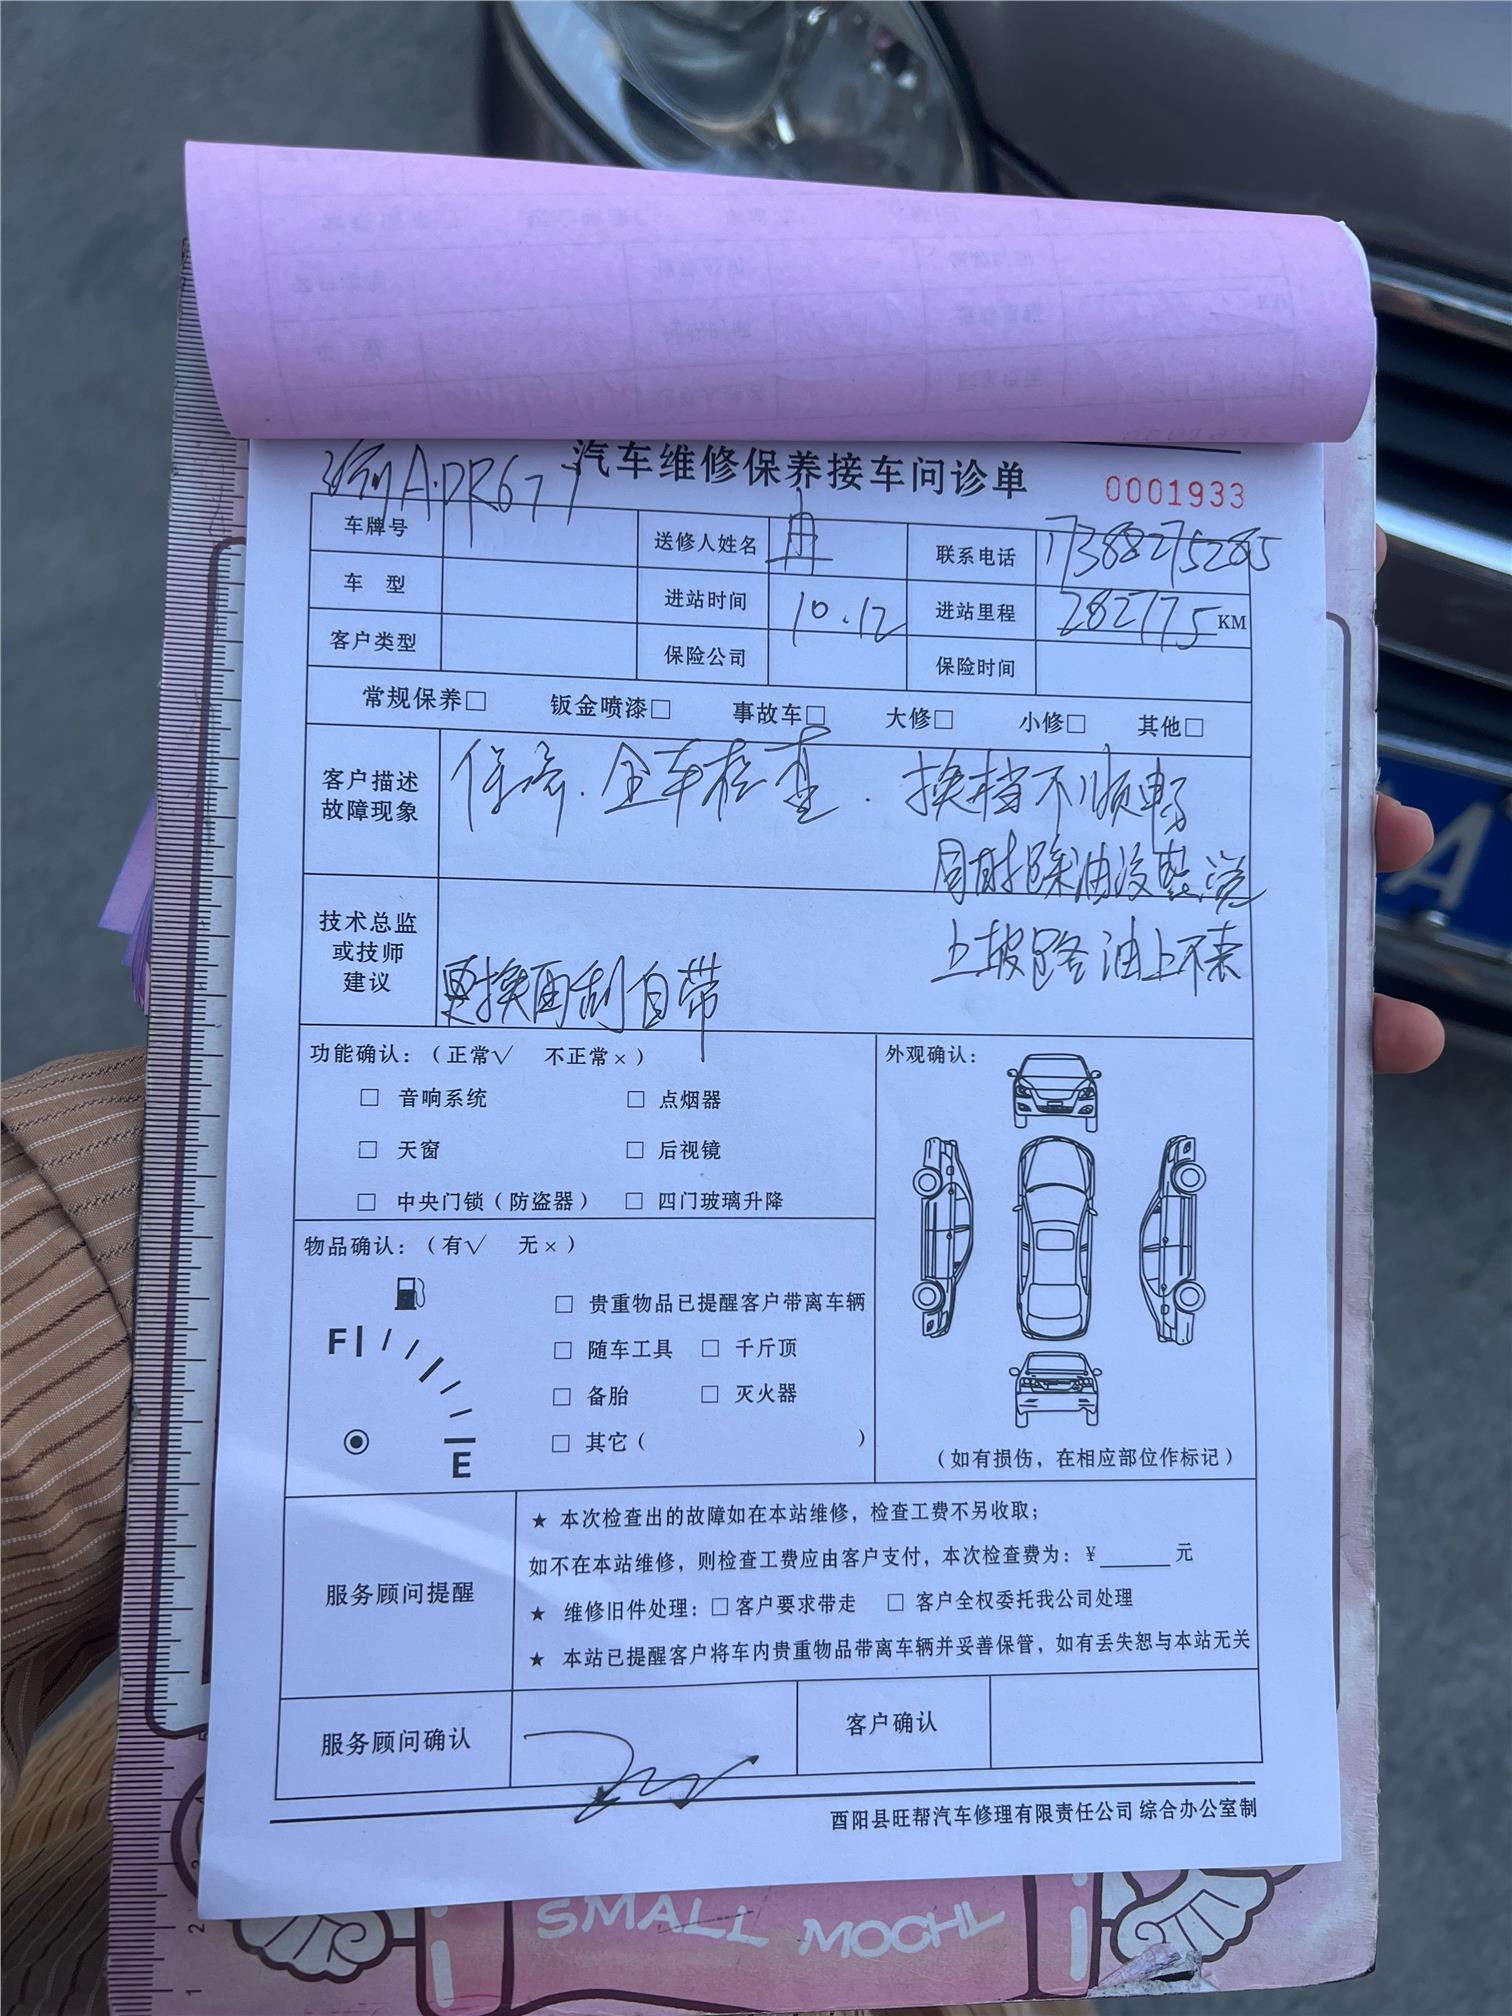 汽车维修保养接车问诊单
0001933
车牌号 渝A·DR671 送修人姓名 冉 联系电话 17388275285
车 型 进站时间 10.12 进站里程 282775 KM
客户类型 保险公司 保险时间
常规保养□ 钣金喷漆□ 事故车□ 大修□ 小修□ 其他□
客户描述
故障现象
保养.全车检查.换档不顺畅
上坡路油上不来
技术总监
或技师
建议
更换雨刮自带
功能确认：（正常√ 不正常×）
□ 音响系统 □ 点烟器
□ 天窗 □ 后视镜
□ 中央门锁（防盗器） □ 四门玻璃升降
外观确认：
（如有损伤，在相应部位作标记）
物品确认：（有√ 无×）
F
E
□ 贵重物品已提醒客户带离车辆
□ 随车工具 □ 千斤顶
□ 备胎 □ 灭火器
□ 其它（ ）
服务顾问提醒
★ 本次检查出的故障如在本站维修，检查工费不另收取；
如不在本站维修，则检查工费应由客户支付，本次检查费为：¥______元
★ 维修旧件处理：□客户要求带走 □ 客户全权委托我公司处理
★ 本站已提醒客户将车内贵重物品带离车辆并妥善保管，如有丢失恕与本站无关
服务顾问确认 客户确认
酉阳县旺帮汽车修理有限责任公司 综合办公室制
SMALL MOCHL
A